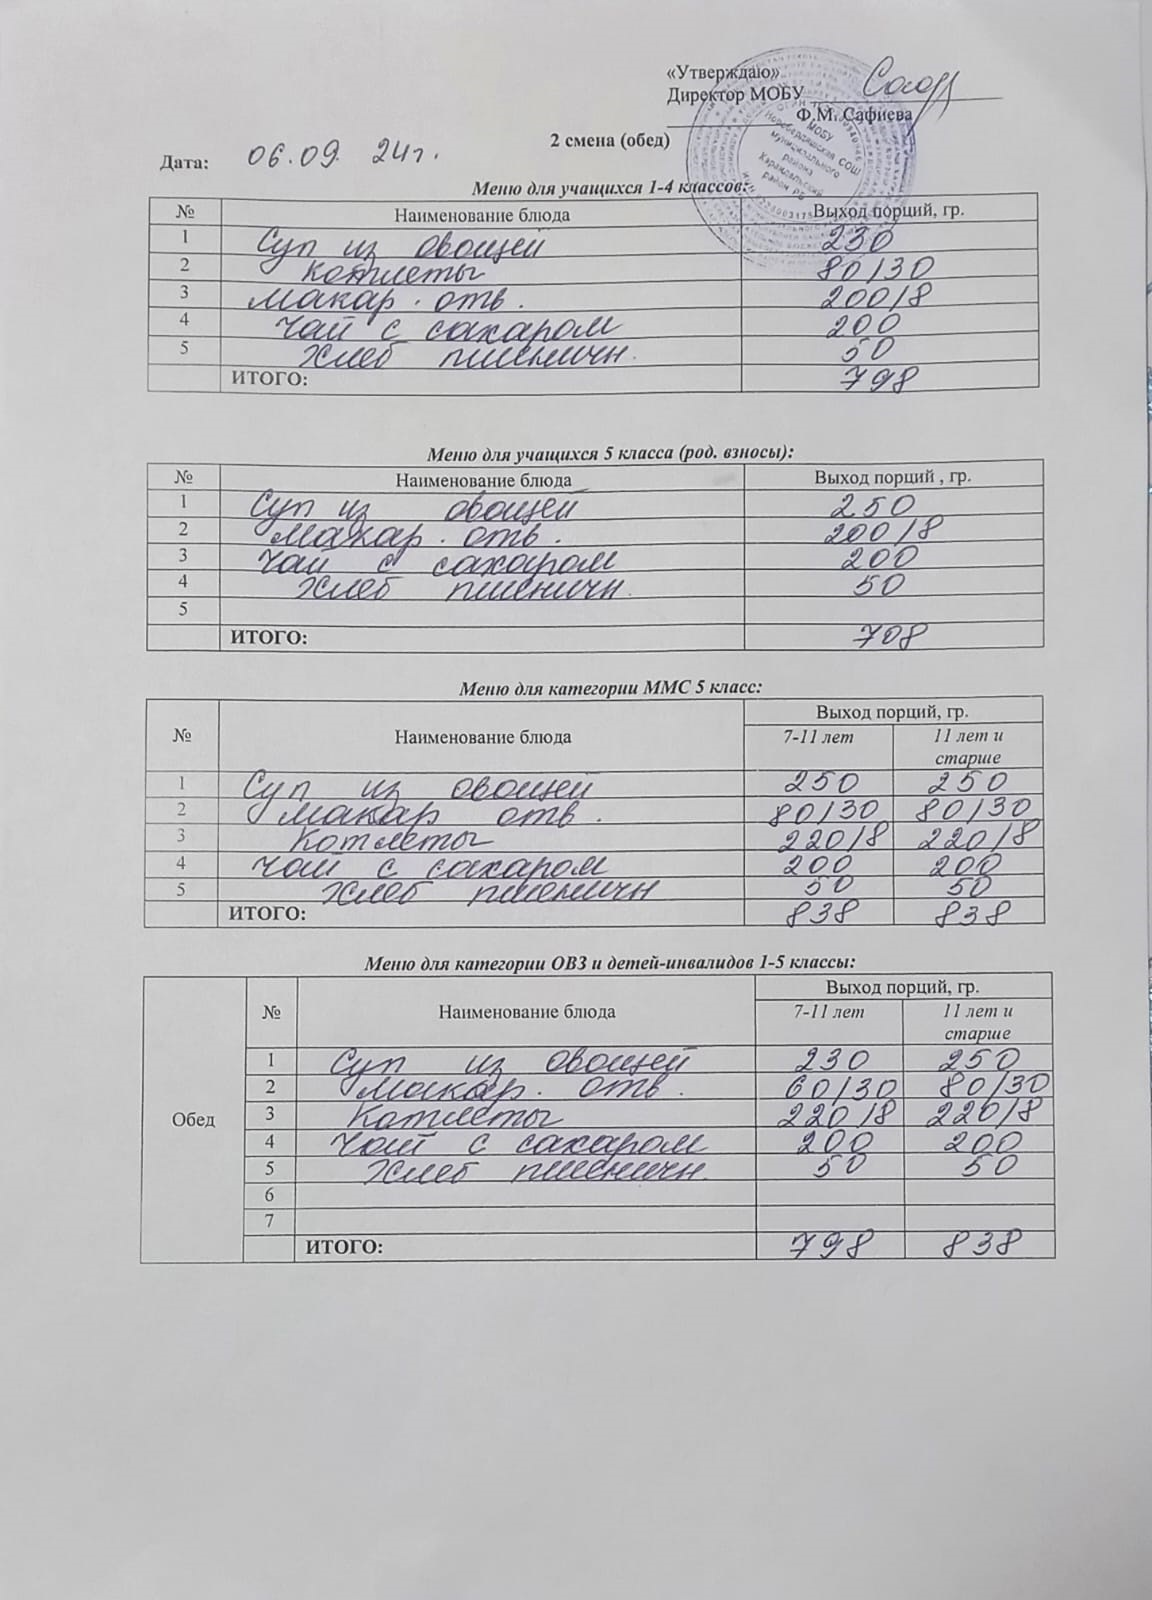 «Утверждаю»
Директор МОБУ
Ф.М. Сафиева
МОБУ
Новобердяшская СОШ
муниципального
района
Караидельский
район РБ
2 смена (обед)
Дата: 06.09. 24г.
Меню для учащихся 1-4 классов:
№ Наименование блюда Выход порций, гр.
1 Суп из овощей 230
2 Котлеты 80/30
3 Макар. отв. 200/8
4 Чай с сахаром 200
5 Хлеб пшеничн. 50
ИТОГО: 798
Меню для учащихся 5 класса (род. взносы):
№ Наименование блюда Выход порций , гр.
1 Суп из овощей 250
2 Макар. отв. 200/8
3 Чай с сахаром 200
4 Хлеб пшеничн. 50
5
ИТОГО: 708
Меню для категории ММС 5 класс:
№ Наименование блюда Выход порций, гр.
7-11 лет 11 лет и
старше
1 Суп из овощей 250 250
2 Макар отв. 80/30 80/30
3 Котлеты 220/8 220/8
4 Чай с сахаром 200 200
5 Хлеб пшеничн 50 50
ИТОГО: 838 838
Меню для категории ОВЗ и детей-инвалидов 1-5 классы:
№ Наименование блюда Выход порций, гр.
7-11 лет 11 лет и
старше
1 Суп из овощей 230 250
2 Макар. отв. 60/30 80/30
3 Котлеты 220/8 220/8
Обед
4 Чай с сахаром 200 200
5 Хлеб пшеничн. 50 50
6
7
ИТОГО: 798 838